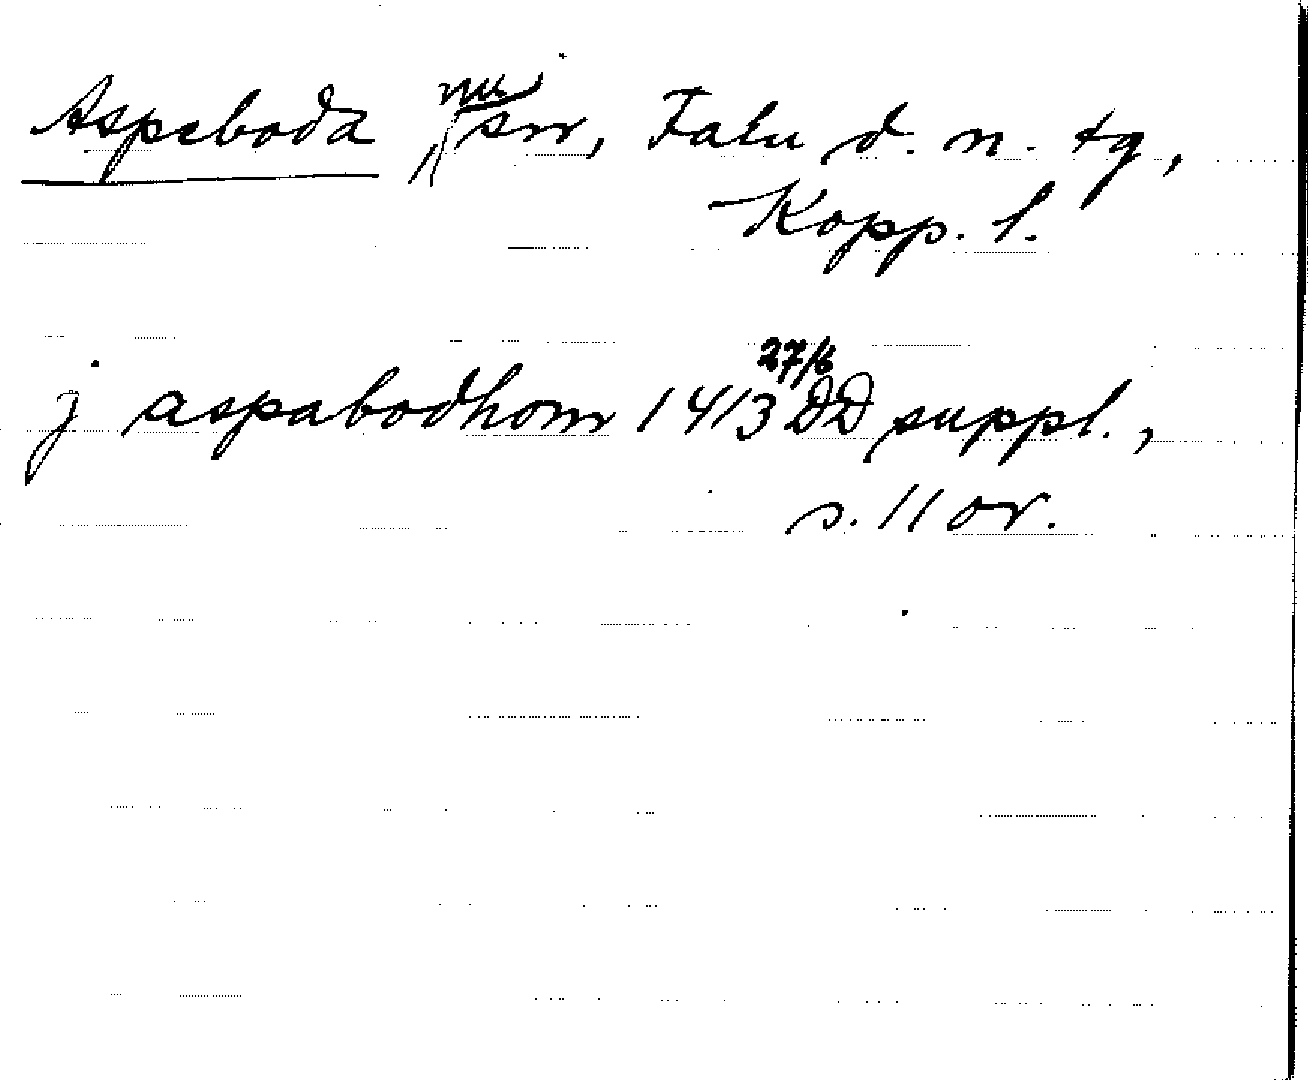 Aspeboda nu sn, Falu d. n. tg,
Kopp. l.
j aspabodhom 1413 27/6 DD suppl.,
s. 11 or.